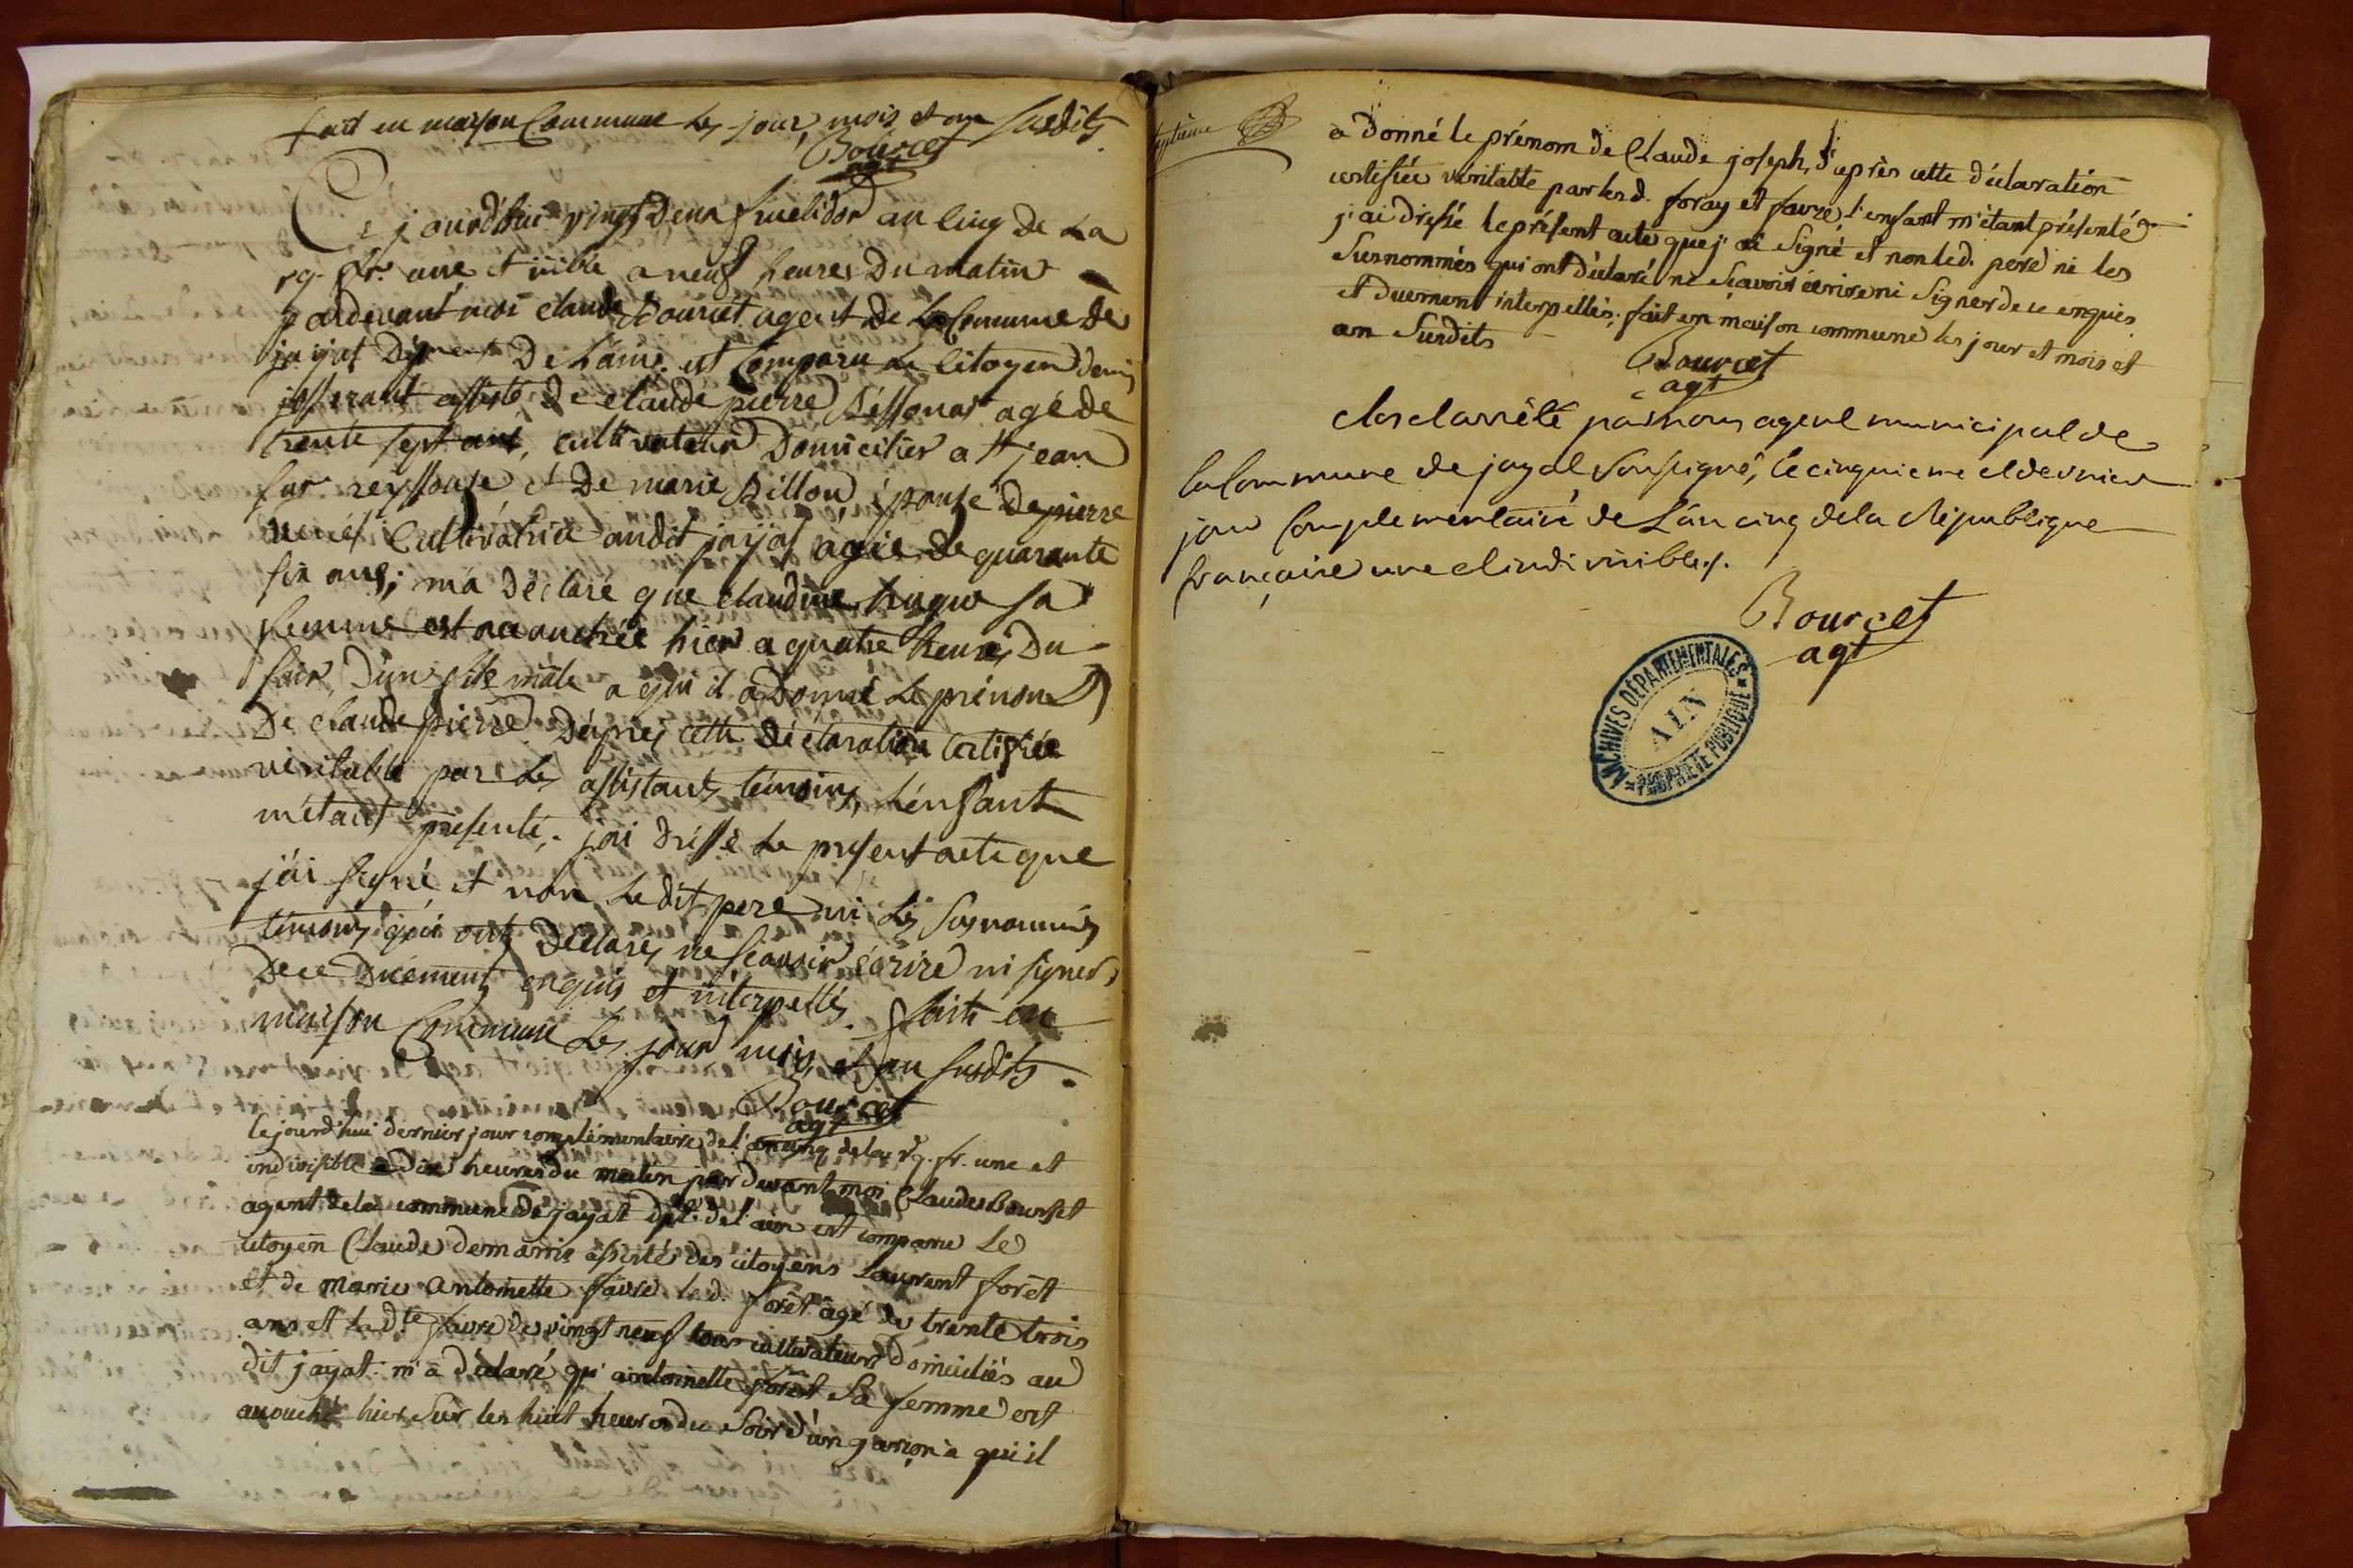 fait en maison Commune les jour, mois et an susdits.
Bourcet
agt
Cejourdhui vingt deux fructidor an cinq de La
rq. fr. une et iiible a neuf heures Du matin
pardevant moi claude Bourcet agent de la Commune de
jayat Dépment De L'ain. est Comparu le Citoyen denis
josserant assisté De claude pierre Béssonat agé de
trente sept ans, cultivateur Domicilier a St jean
sur reyssouse et De marie Billou, épouse De pierre
Cultivatrice audit jayat agée de quarante
six ans; m'a Déclaré que claudine hugue sa
femme est accouchée hier a quatre heures Du
soir, D'un fils mâle a qui il a Donné Le prénom
De claude pierre. Déprès cette Déclaration Certifiée
véritable par Les assistants témoins, L'enfant
m'étant présenté; j'ai Dréssé Le présent acte que
j'ai signé et non Le dit pere ni Les susnommés
témoins qui ont Déclarés ne scavoir écrire ni signer,
De ce Duement enquis et interpellés. faite en
maison Commune Les jour mois et an susdits.
Bourcet
agt
Cejourd'hui dernier jour complémentaire de l'an cinq de la rq. fr. une et
indivisible a Dix heures du matin par devant moi Claude Bourset
agent de la commune de jayat dpt. de l'ain est comparu le
citoyen Claude demarrie assisté des citoyens Laurent forêt
et de marie antoinette favre led. forêt âgé de trente trois
ans et lad.te favre de vingt neuf tous cultivateurs domiciliés au
dit jayat. m'a déclaré qu'antoinette forêt Sa femme est
accouché hier Sur les huit heures du Soir d'un garçon à qui il
septième
a donné le prénom de Claude joseph, d'après cette déclaration
certifiée véritable par lesd. foray et favre, l'enfant m'étant présenté
j'ai dressé le présent acte que j'ai signé et non led. pere ni les
Susnommés qui ont déclaré ne Sçavoir écrire ni Signer de ce enquis
et duement interpellés; fait en maison commune les jour et mois et
an Susdits
Bourcet
agt
clos et arrêté par nous agent municipal de
la Commune de jayat Soussigné, le cinquieme et dernier
jour Complementaire de L'an cinq de la République
française une et indivisible.
Bourcet
agt
ARCHIVES DÉPARTEMENTALES
AIN
PROPRIÉTÉ PUBLIQUE